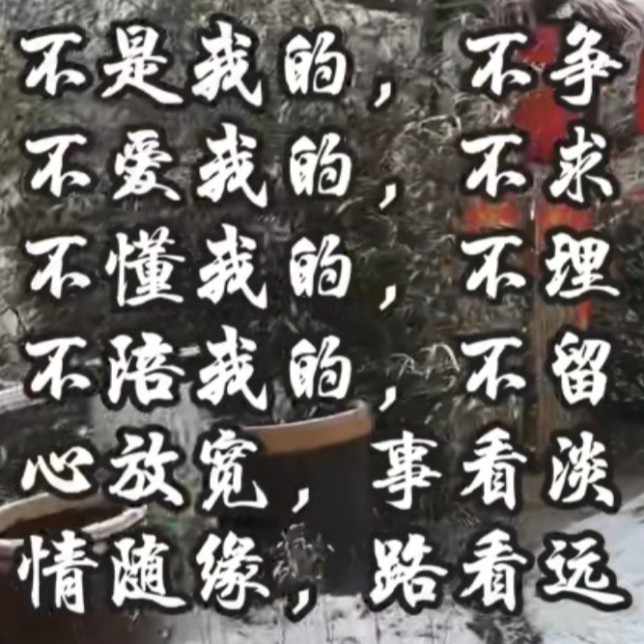 不是我的，不争
不爱我的，不求
不懂我的，不理
不陪我的，不留
心放宽，事看淡
情随缘，路看远